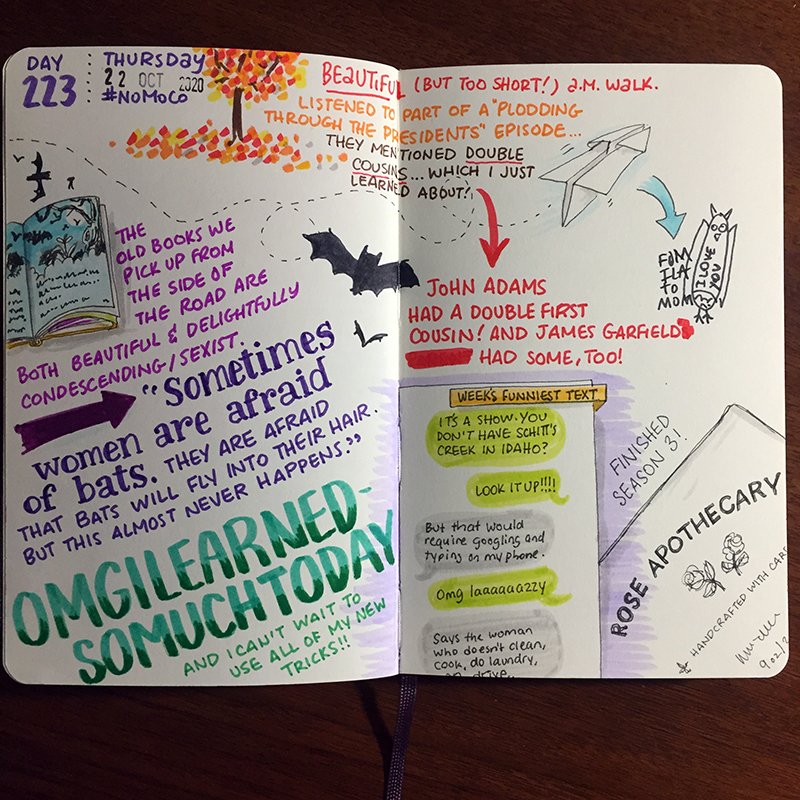 DAY
223
THURSDAY
22 OCT 2020
#NOMOCO
BEAUTIFUL (BUT TOO SHORT!) a.m. WALK.
LISTENED TO PART OF A "PLODDING
THROUGH THE PRESIDENTS" EPISODE...
THEY MENTIONED DOUBLE
COUSINS... WHICH I JUST
LEARNED ABOUT!
THE
OLD BOOKS WE
PICK UP FROM
THE SIDE OF
THE ROAD ARE
BOTH BEAUTIFUL & DELIGHTFULLY
CONDESCENDING/SEXIST.
"Sometimes
women are afraid
of bats. THEY ARE AFRAID
THAT BATS WILL FLY INTO THEIR HAIR.
BUT THIS ALMOST NEVER HAPPENS."
OMGILEARNED-
SOMUCHTODAY
AND I CAN'T WAIT TO
USE ALL OF MY NEW
TRICKS!!
FOM
TO
MOM
I LOVE
YOU
JOHN ADAMS
HAD A DOUBLE FIRST
COUSIN! AND JAMES GARFIELD
HAD SOME, TOO!
WEEK'S FUNNIEST TEXT
IT'S A SHOW. YOU
DON'T HAVE SCHITT'S
CREEK IN IDAHO?
LOOK IT UP!!!!
But that would
require googling and
typing on my phone.
Omg laaaaaazzy
Says the woman
who doesn't clean,
cook, do laundry,
drive
FINISHED
SEASON 3!
ROSE APOTHECARY
HANDCRAFTED WITH CARE